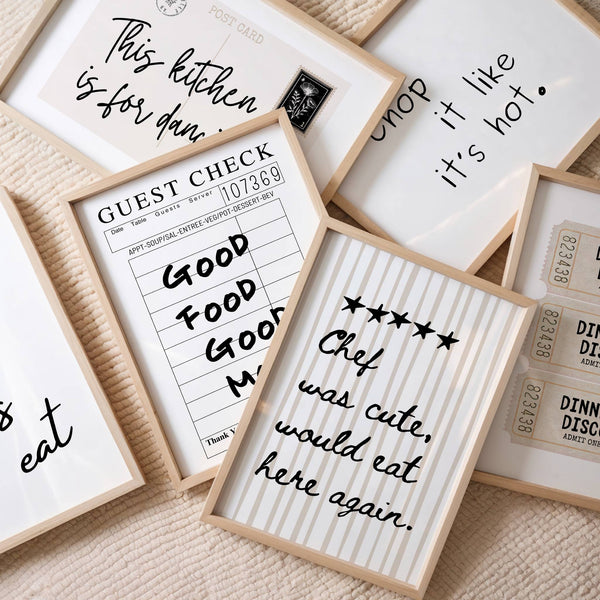 POST CARD
This kitchen
is for
chop
it like
it's hot.
GUEST CHECK
Date Table Guests Server
107369
APPT-SOUP/SAL-ENTREE-VEG/POT-DESSERT-BEV
GOOD
FOOD
GOOD
Thank
eat
★★★★★
Chef
was cute,
would eat
here again.
823438
823438
DISC
ADMIT ONE
823438
DISCO
ADMIT ONE